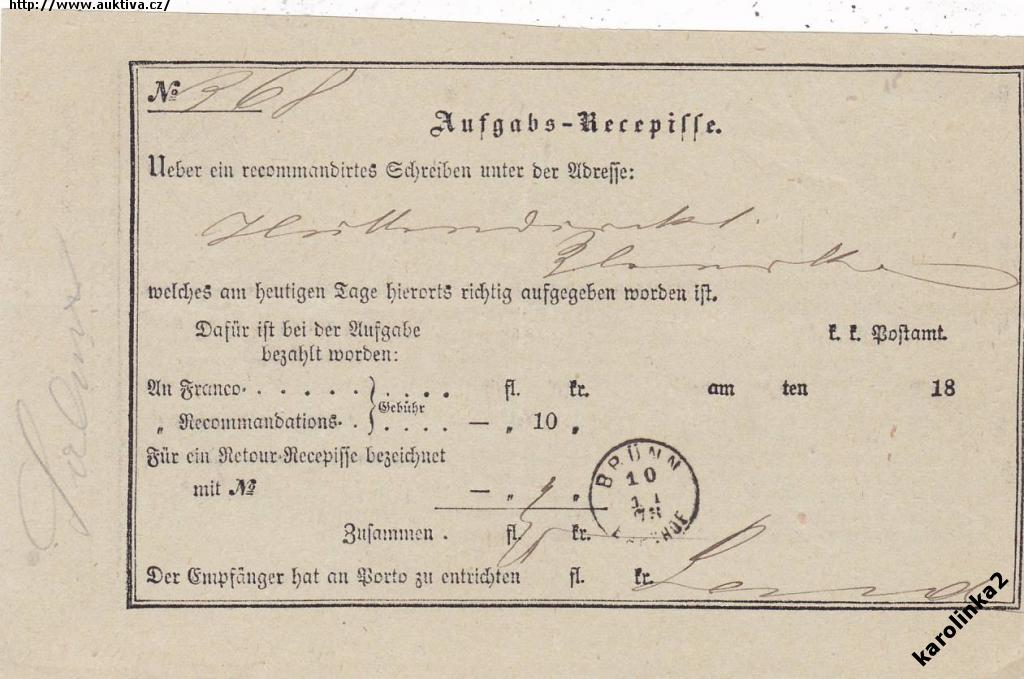 http://www.auktiva.cz/
№ 368
Aufgabs-Recepisse.
Ueber ein recommandirtes Schreiben unter der Adresse:
welches am heutigen Tage hierorts richtig aufgegeben worden ist.
Dafür ist bei der Aufgabe
bezahlt worden:
k. k. Postamt.
An Franco . . . . . . . . . . fl. kr. am ten 18
„ Recommandations . . Gebühr . . . . — „ 10 „
Für ein Retour-Recepisse bezeichnet
mit № — „ „
BRÜNN
10
11
78
Zusammen . fl. kr.
Der Empfänger hat an Porto zu entrichten fl. kr.
karolinka2